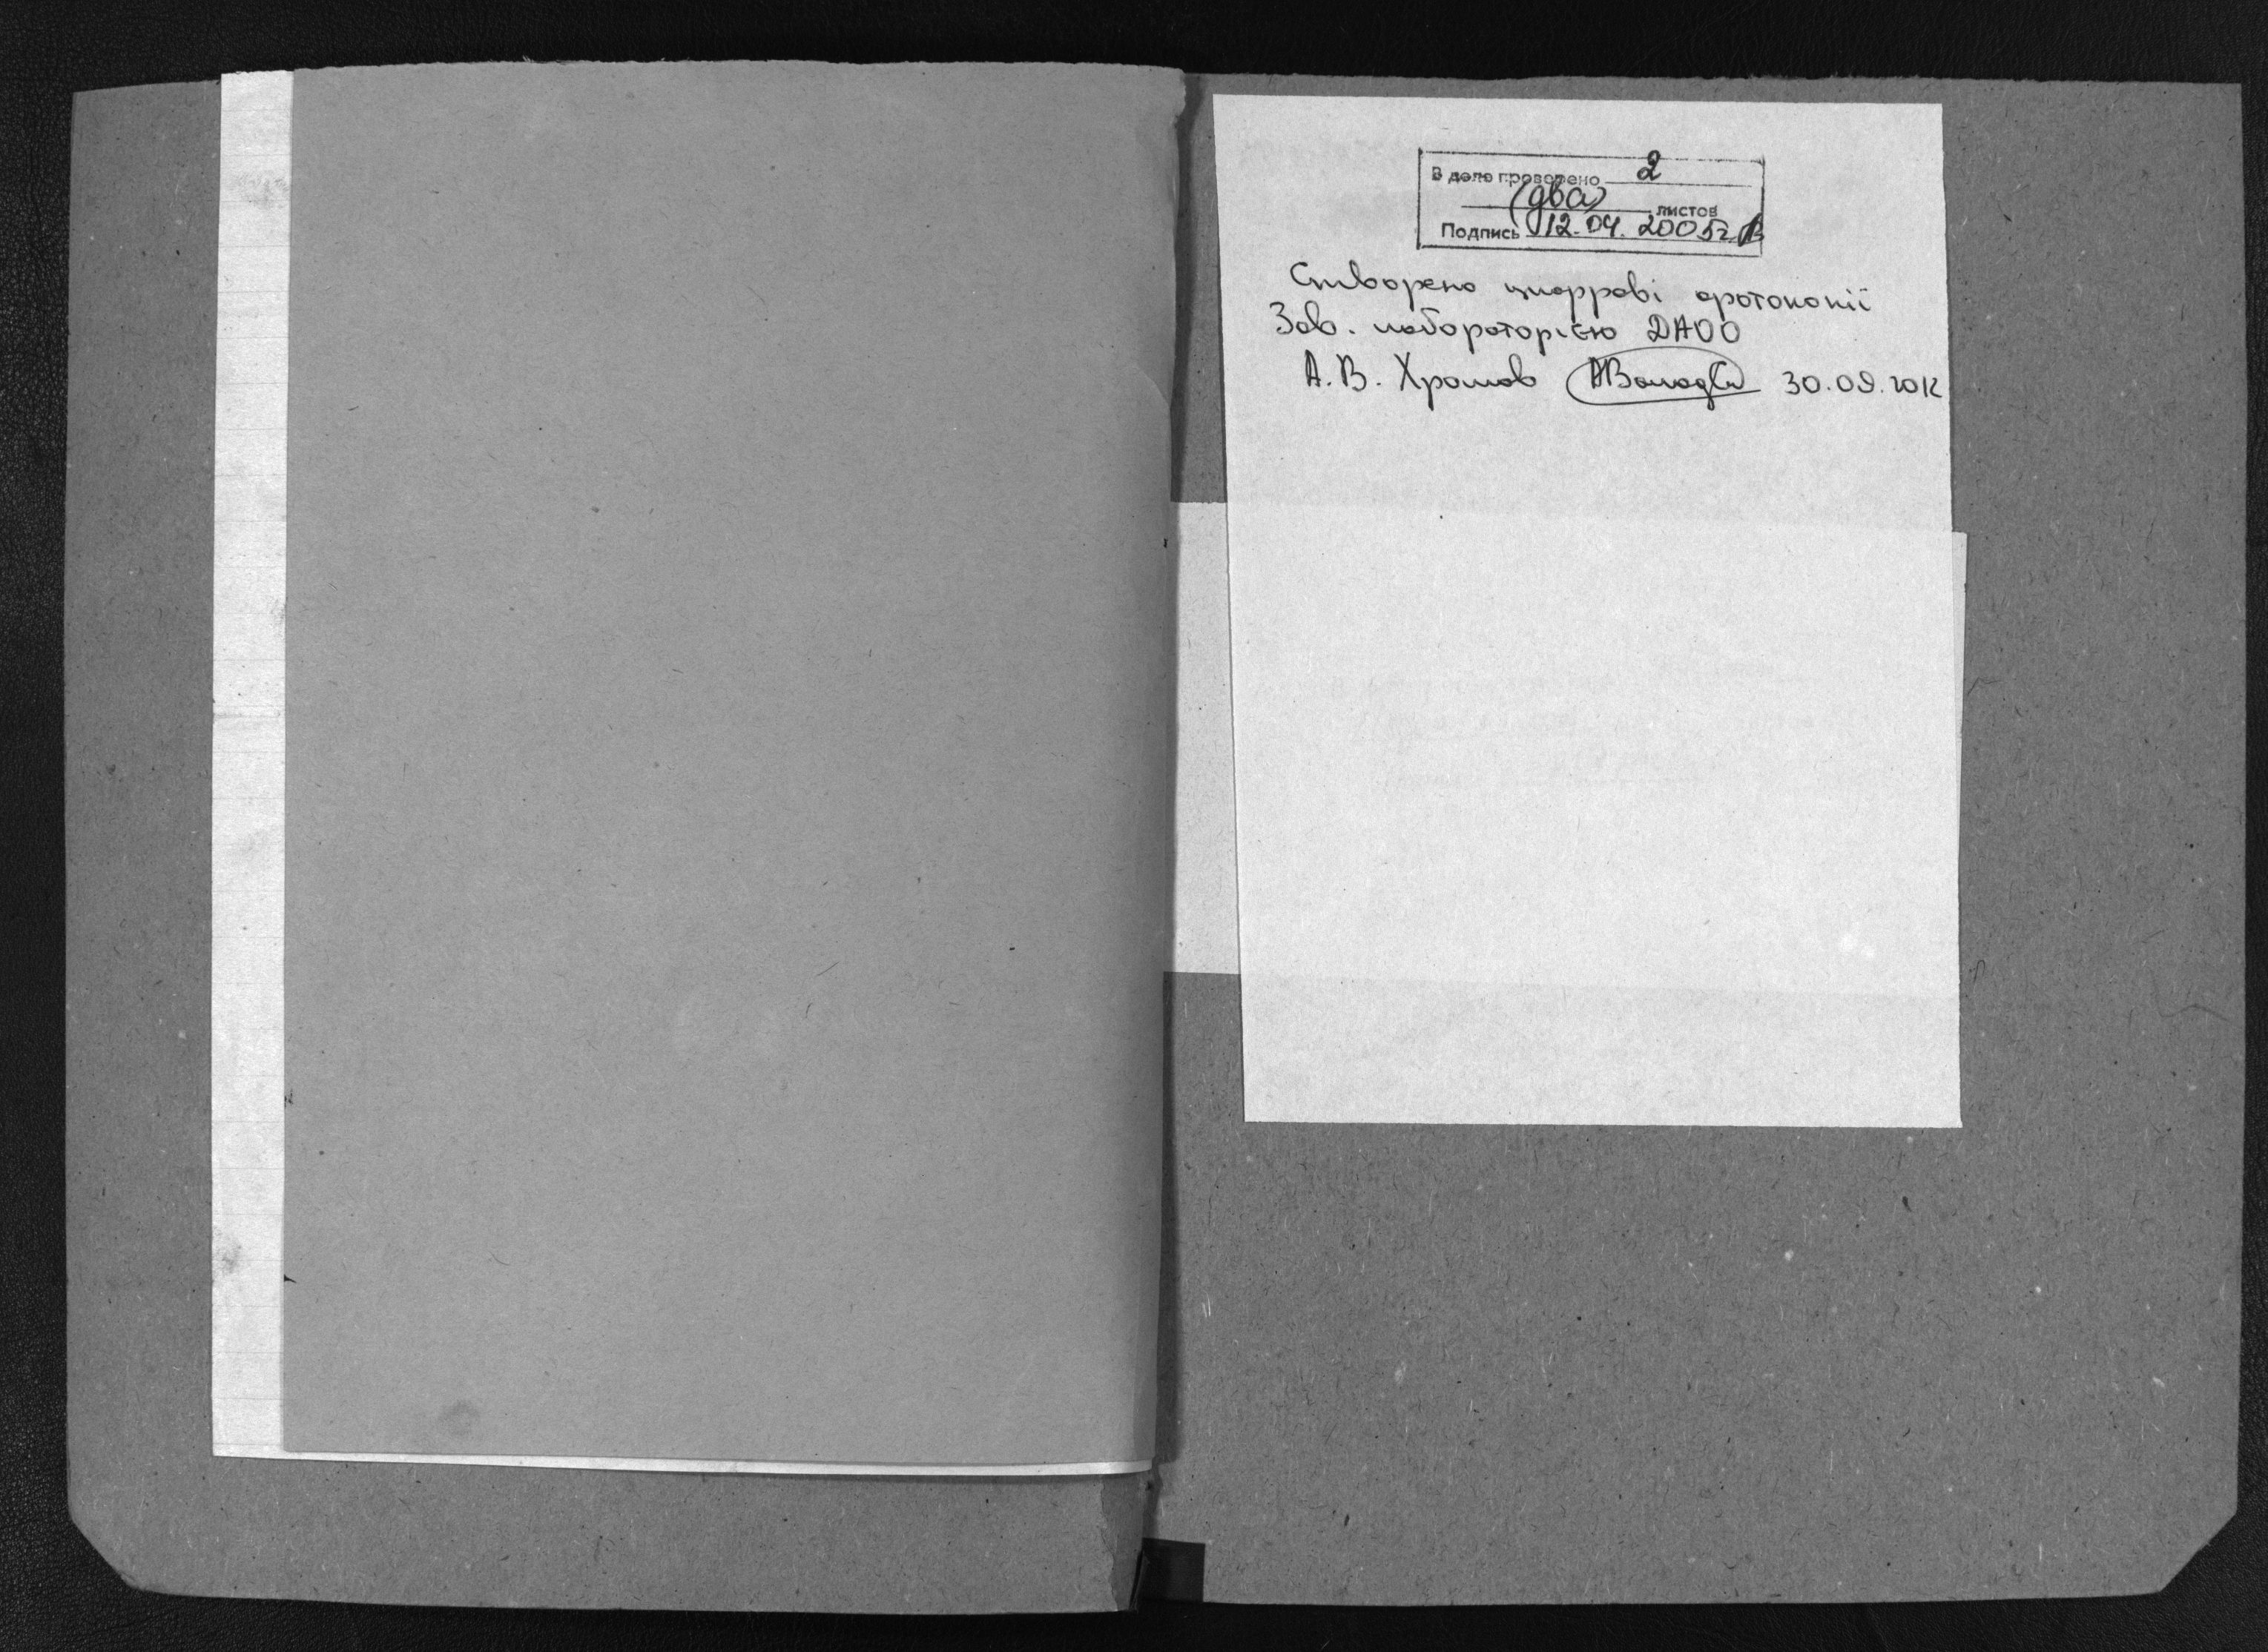 В деле проверено 2
(два) листов
Подпись 12.04.2005г.
Створено цифрові фотокопії
Зав. лабораторією ДАОО
А.В. Хромов 30.09.2012